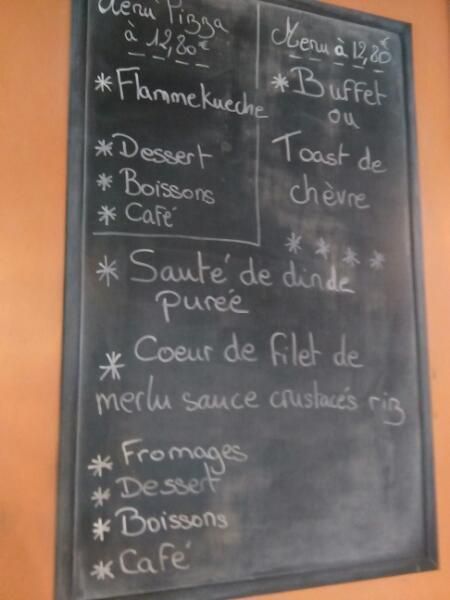 Menu Pizza
à 12,80€
* Flammekueche
* Dessert
* Boissons
* Café
Menu à 12,80€
* Buffet
ou
Toast de
chèvre
* * * *
* Sauté de dinde
pureé
* Coeur de filet de
merlu sauce crustacés riz
* Fromages
* Dessert
* Boissons
* Café